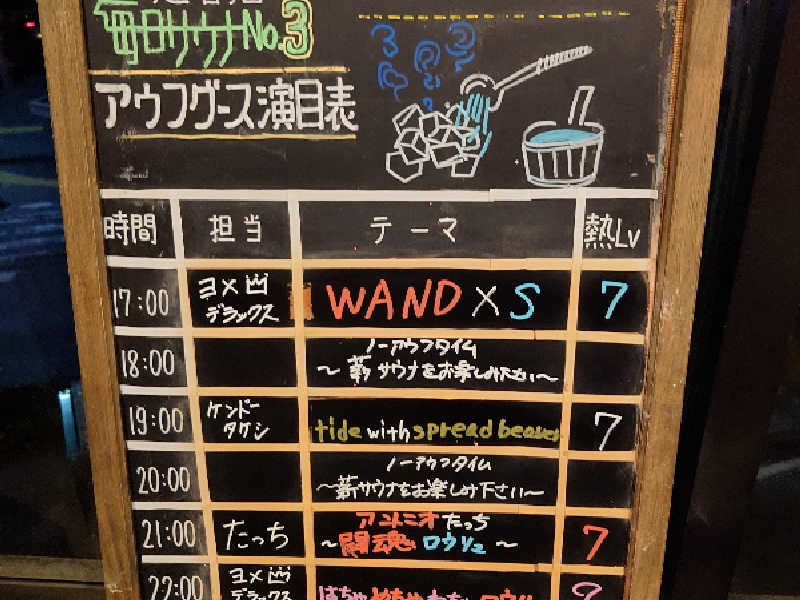 毎日サウナNo.3
アウフグース演目表
時間 担当 テーマ 熱Lv
17:00 ヨメ凶デラックス WAND X S 7
18:00 ノーアウフタイム
〜薪サウナをお楽しみ下さい〜
19:00 ケンドータケシ tide with spread beaver 7
20:00 ノーアウフタイム
〜薪サウナをお楽しみ下さい〜
21:00 たっち アントニオたっち
〜闘魂ロウリュ〜 7
22:00 ヨメ凶デラックス